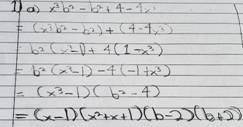 1) a) x³b² - b² + 4 - 4x³
= (x³b² - b²) + (4 - 4x³)
b² (x³-1) + 4 (1 - x³)
= b² (x³-1) - 4 (-1 + x³)
= (x³-1) (b² - 4)
= (x-1) (x²+x+1) (b-2) (b+2)